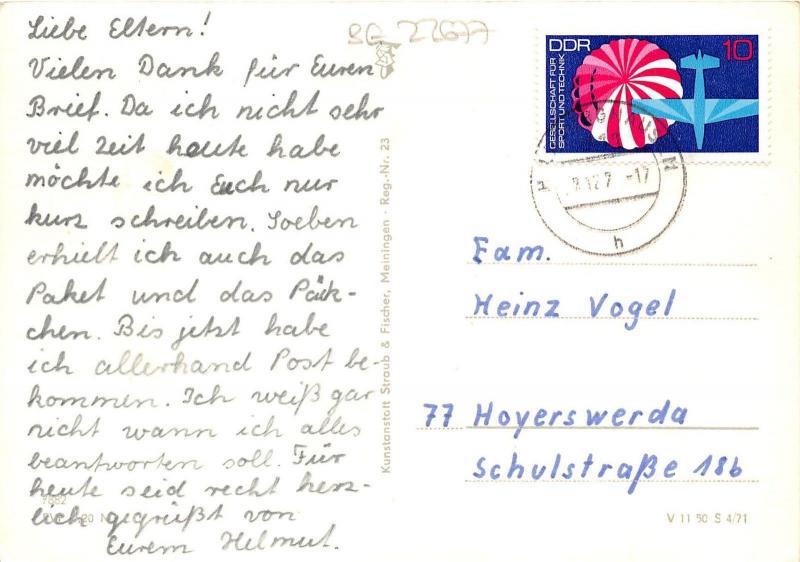 Liebe Eltern!
Vielen Dank für Euren
Brief. Da ich nicht sehr
viel Zeit heute habe
möchte ich Euch nur
kurz schreiben. Soeben
erhielt ich auch das
Paket und das Päck-
chen. Bis jetzt habe
ich allerhand Post be-
kommen. Ich weiß gar
nicht wann ich alles
beantworten soll. Für
heute seid recht herz-
lich gegrüßt von
Eurem Helmut.
Kunstanstalt Straub & Fischer, Meiningen · Reg.-Nr. 23
DDR 10
GESELLSCHAFT FÜR
SPORT UND TECHNIK
-17
h
Fam.
Heinz Vogel
77 Hoyerswerda
Schulstraße 18b
V 11 50 S 4/71